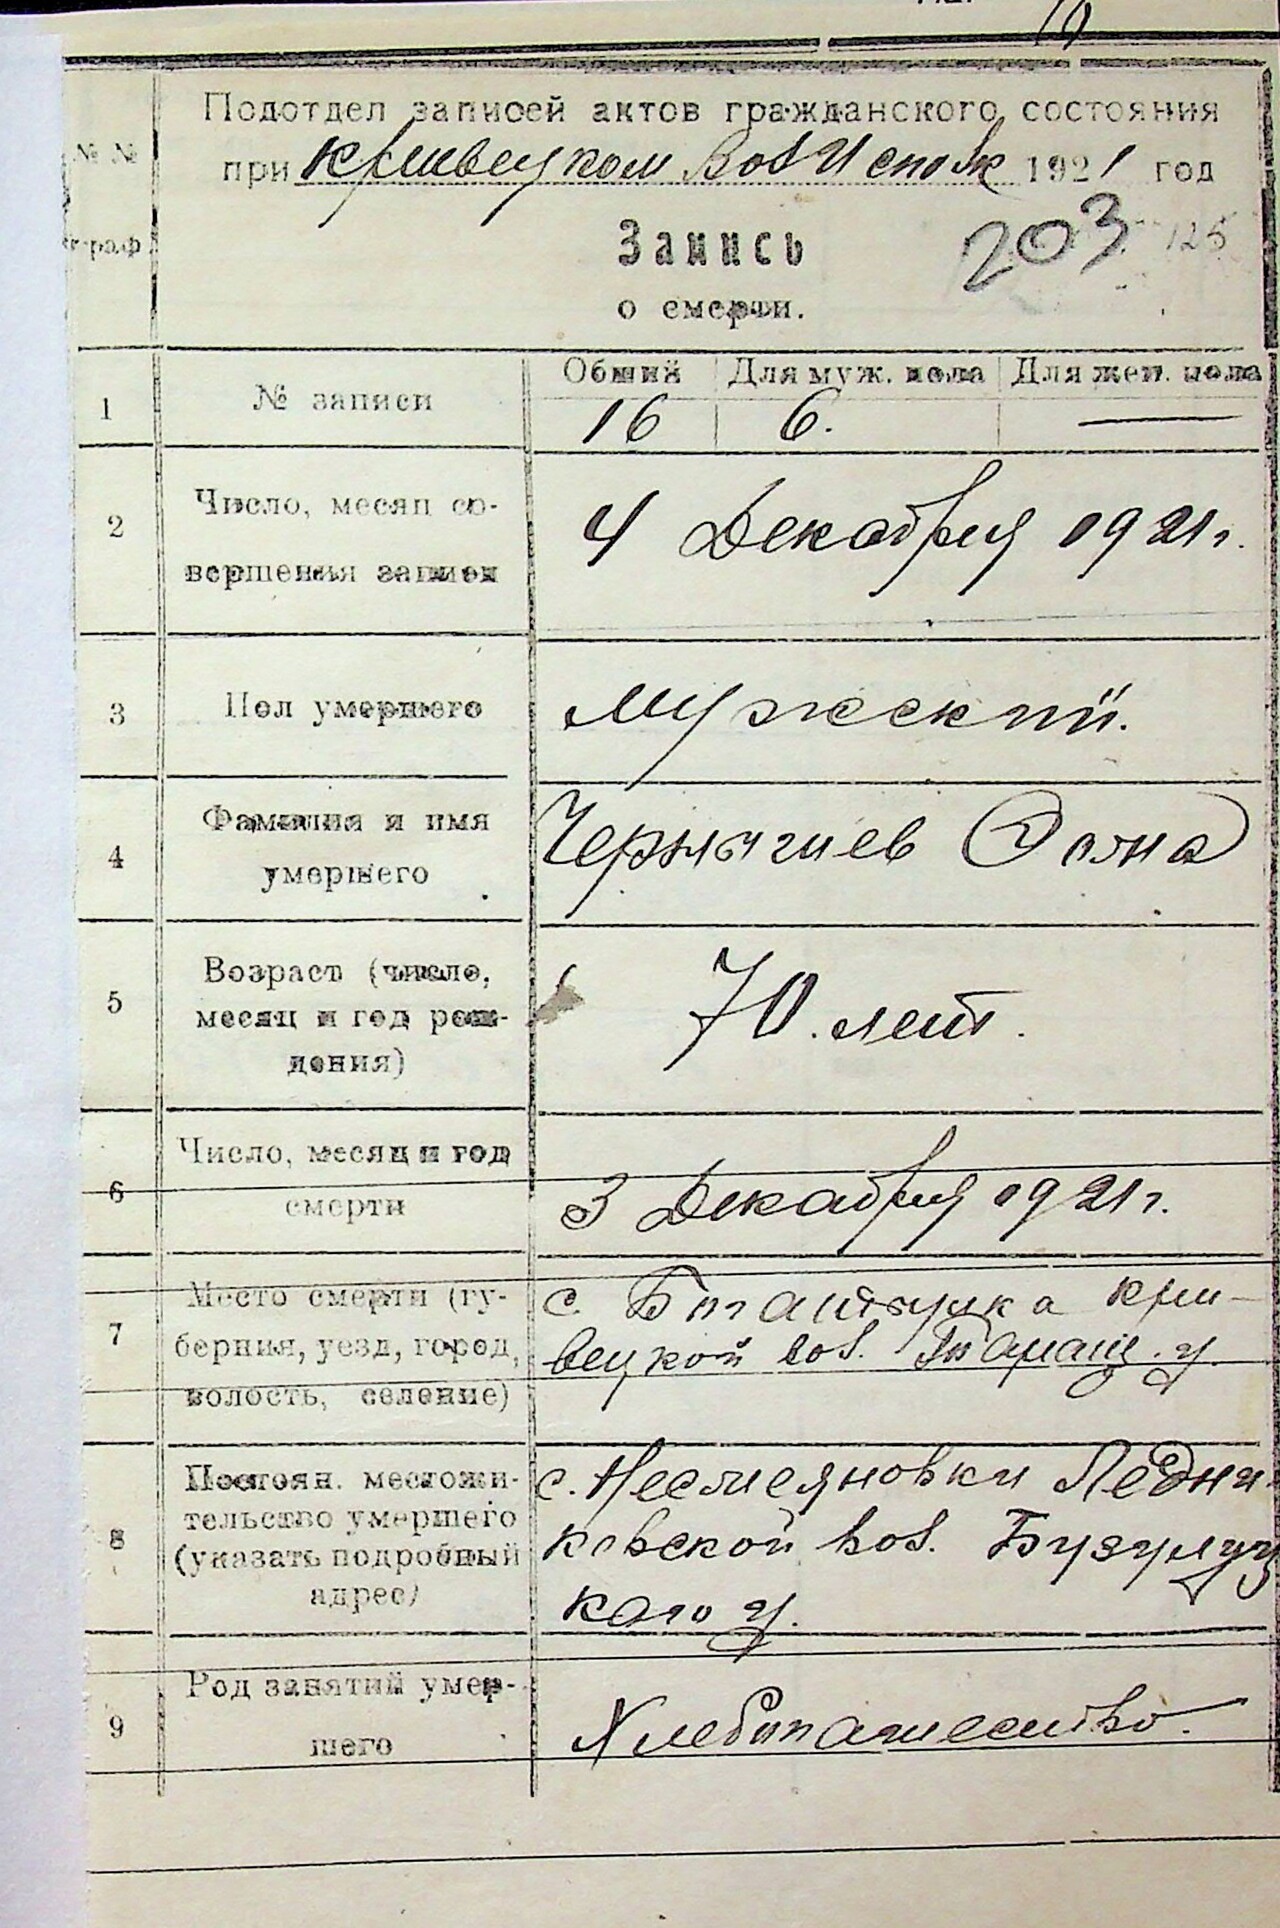 Подотдел записей актов гражданского состояния
при Кривецком Волисполк 1921 год
№ № граф
203 125
Запись
о смерти.
1 № записи Общий Для муж. пола Для жен. пола
16 6. —
2 Число, месяц со-
вершения записи
4 Декабря 1921 г.
3 Пол умершего Мужеский.
4 Фамилия и имя
умершего
Чернычиев Фома
5 Возраст (число,
месяц и год рож-
дения)
70. лет.
6 Число, месяц и год
смерти
3 Декабря 1921 г.
7 Место смерти (гу-
берния, уезд, город,
волость, селение)
с. Криг-
вецкой вол. Таращ. у.
8 Постоян. местожи-
тельство умершего
(указать подробный
адрес)
с. Несмеяновки
вол. Бузулуц
каго у.
9 Род занятий умер-
шего
Хлебопашество.